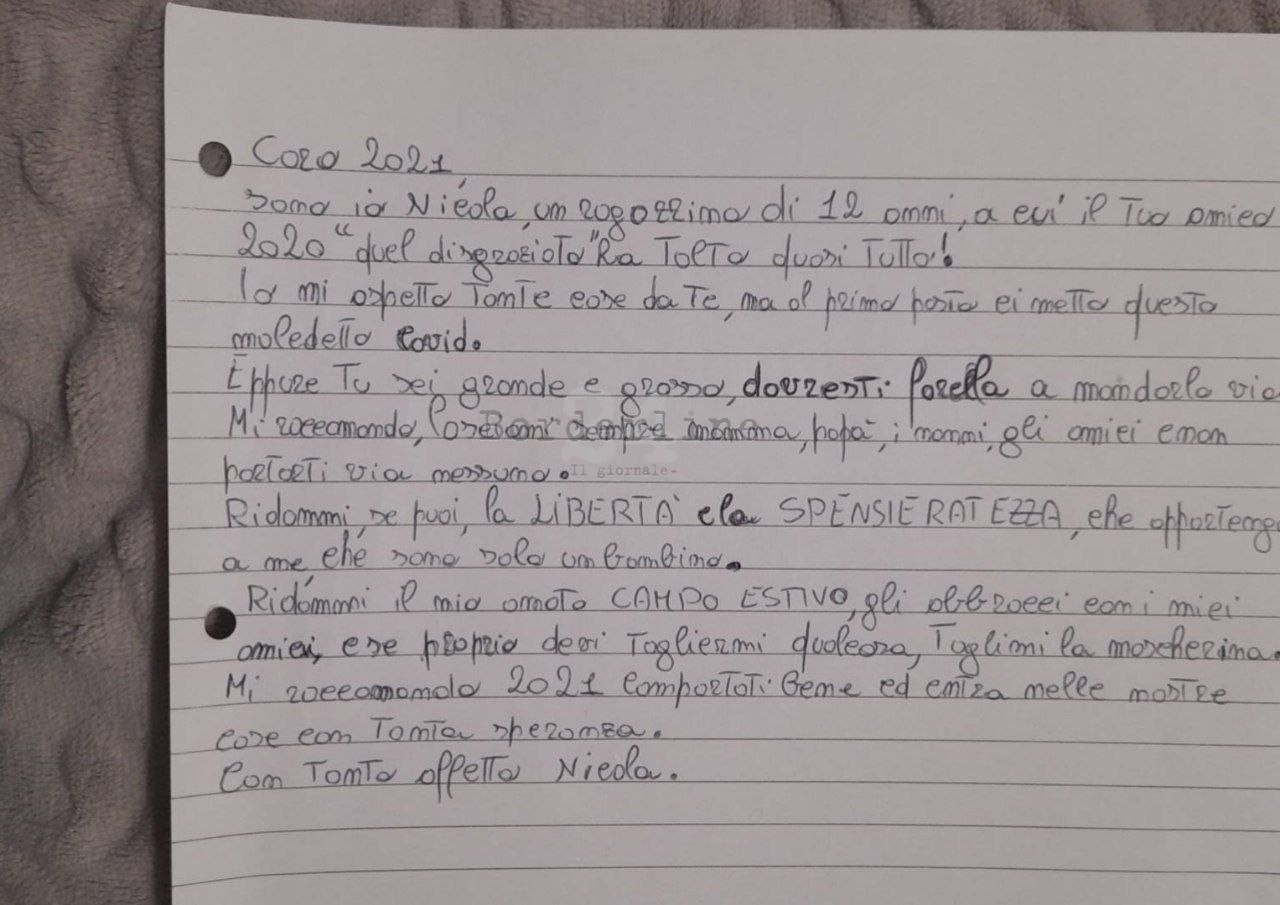 Caro 2021,
sono io Nicola, un ragazzino di 12 anni, a cui il tuo amico
2020 "quel disgraziato" ha tolto quasi tutto!
Io mi aspetto tante cose da te, ma al primo posto ci metto questo
maledetto covid.
Eppure tu sei grande e grosso, dovresti farcela a mandarlo via
Mi raccomando, lasciami sempre mamma, papà, i nonni, gli amici e non
portarti via nessuno.
Il giornale-
Ridammi, se puoi, la LIBERTA' e la SPENSIERATEZZA, che
a me che sono solo un bambino.
Ridammi il mio amato CAMPO ESTIVO, gli abbracci con i miei
amici, e se proprio devi togliermi qualcosa, toglimi la mascherina.
Mi raccomando 2021 comportati bene ed entra nelle nostre
case con tanta speranza.
Con tanto affetto Nicola.